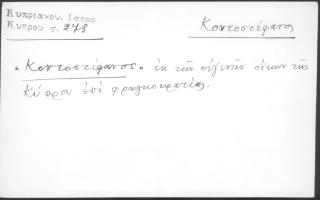 Κυπριανου, Ιστορ.
Κυπρου σ. 273
Κοντοστέφανος
"Κοντοστέφανος" ἐκ τῶν εὐγενῶν οἴκων τῆς
Κύπρου ἐπὶ φραγκοκρατίας.